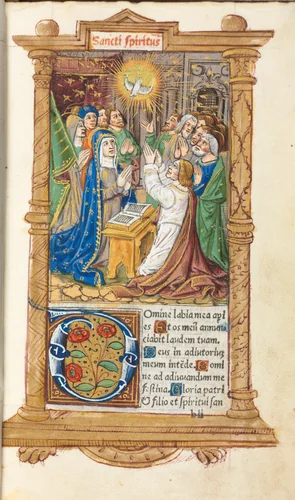 Sancti spiritus
Domine labia mea apies
es Et os meū annun
ciabit laudem tuam.
Deus in adiutoriū
meum intēde. Domi
ne ad adiuvandum me
festina. Gloria patri
& filio et spiritui san
b ii